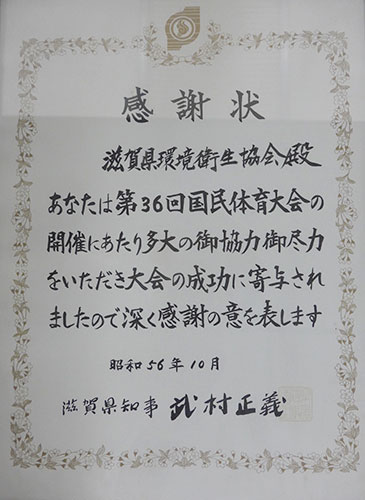 感謝状
滋賀県環境衛生協会殿
あなたは第36回国民体育大会の
開催にあたり多大の御協力御尽力
をいただき大会の成功に寄与され
ましたので深く感謝の意を表します
昭和56年10月
滋賀県知事 武村正義